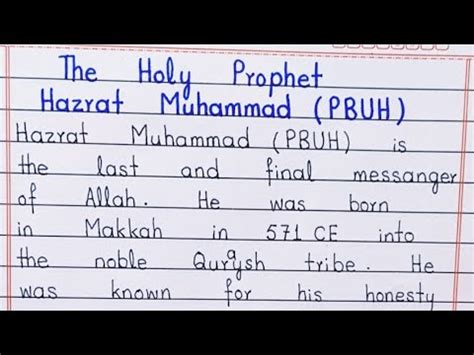 The Holy Prophet
Hazrat Muhammad (PBUH)
Hazrat Muhammad (PBUH) is
the last and final messanger
of Allah. He was born
in Makkah in 571 CE into
the noble Qurysh tribe. He
was known for his honesty